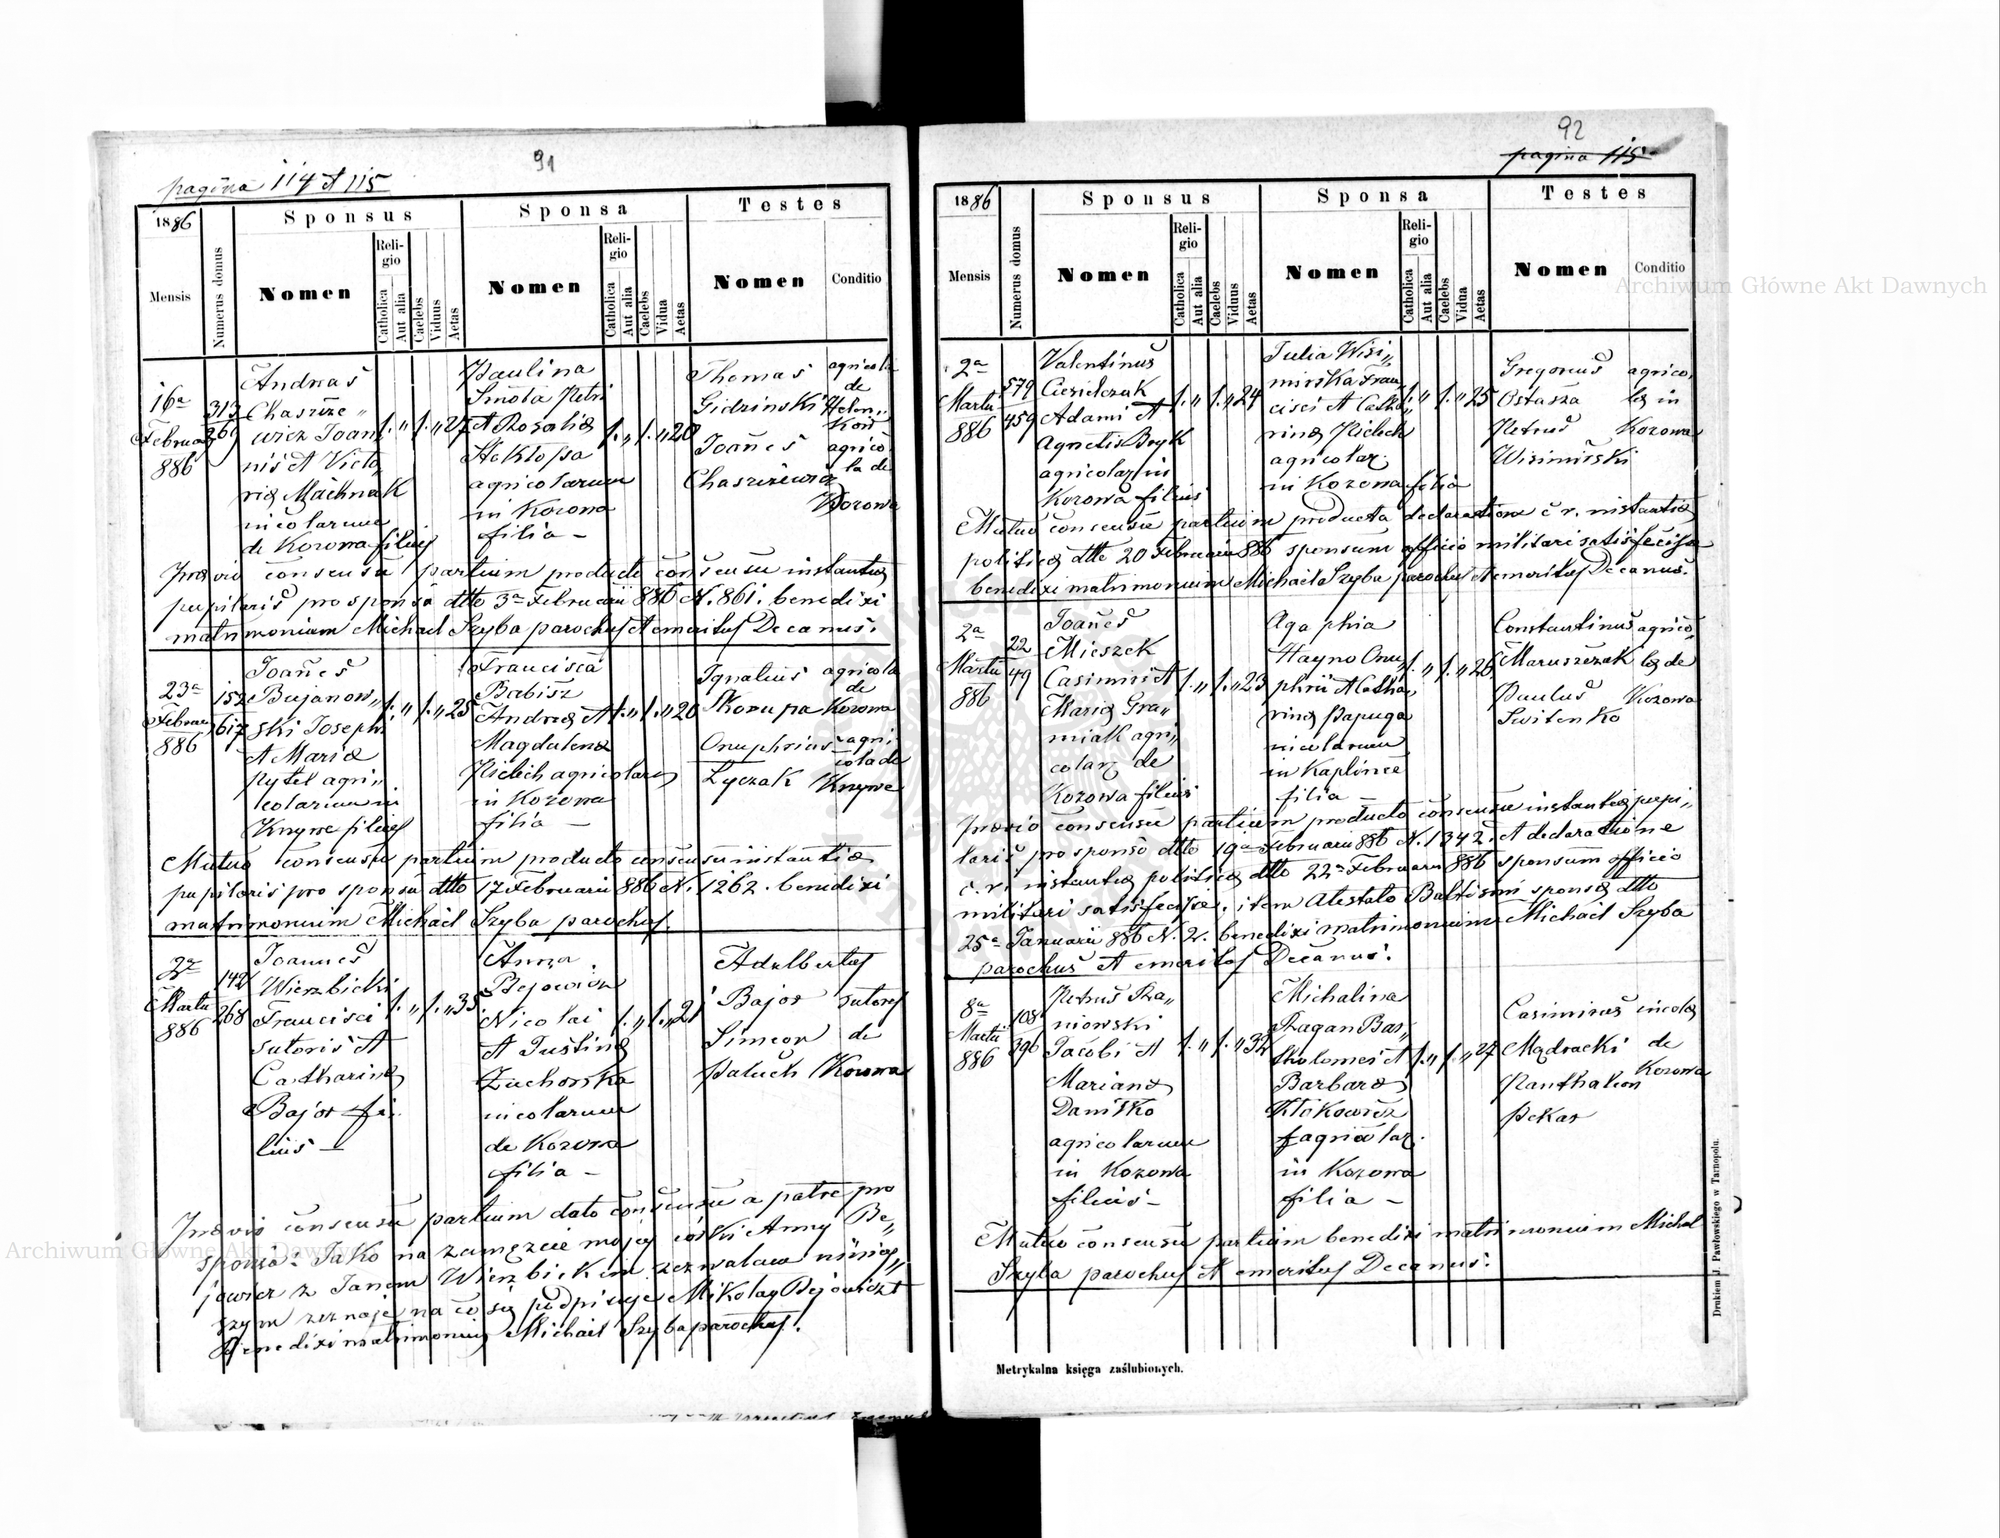 91
pagina 114 et 115
1886
Sponsus
Sponsa
Testes
Mensis
Numerus domus
Nomen
Religio
Catholica
Aut alia
Caelebs
Viduus
Aetas
Nomen
Religio
Catholica
Aut alia
Caelebs
Vidua
Aetas
Nomen
Conditio
16a
Februarii
886
313
269
Andreas
Chaszcze„
wicz Joan
nis et Victo
riæ Machnak
incolarum
de Kozowa filius
1 „ 1 „ 27
Paulina
Smola Petri
et Rosaliæ
Stoklosa
agricolarum
in Kozowa
filia –
1 „ 1 „ 20
Thomas
Gidzinski
Joañes
Chaszczewicz
agricola
de
Helen„
kow
agrico
la de
Kozowa
Prævio consensu partium producto consensu instantiæ
pupilaris pro sponsa dtto 3a Februarii 886 N. 861. benedixi
matrimonium Michael Szyba parochus et emeritus Decanus.
23a
Februar
886
152
617
Joañes
Bujanow„
ski Joseph
et Mariæ
Pytel agri„
colarum in
Knywe filius
1 „ 1 „ 25
Francisca
Babisz
Andreæ et
Magdalenæ
Kielich agricolarum
in Kozowa
filia –
1 „ 1 „ 20
Ignatius
Skorupa
Onuphrius
Łyczak
agricola
de
Kozowa
agri„
cola de
Knywe
Mutuo consensu partium producto consensu instantiæ
pupilaris pro sponsa dtto 17 Februarii 886 N. 1262. benedixi
matrimonium Michael Szyba parochus.
2a
Martii
886
142
268
Joannes
Wierzbicki
Francisci
sutoris et
Catharinæ
Bajor fi
lius –
1 „ 1 „ 35
Anna
Bejowicz
Nicolai
et Justinæ
Zuchorska
incolarum
de Kozowa
filia –
1 „ 1 „ 21
Adalbertus
Bajor
Simeon
Paluch
sutores
de
Kozowa
Prævio consensu partium dato consensu a patre pro
sponsa: Jako na zamęzcie mojej córki Anny Be„
jowicz z Janem Wierzbickim zezwalam niniej„
szym zeznaje na co się podpisuje Mikołay Bejowicz
Benedixi matrimonium Michael Szyba parochus.
92
pagina 115
1886
Sponsus
Sponsa
Testes
Mensis
Numerus domus
Nomen
Religio
Catholica
Aut alia
Caelebs
Viduus
Aetas
Nomen
Religio
Catholica
Aut alia
Caelebs
Vidua
Aetas
Nomen
Conditio
2a
Martii
886
579
459
Valentinus
Cieżelczuk
Adami et
Agnetis Bryk
agricolar in
Kozowa filius
1 „ 1 „ 24
Julia Wisi„
mirska Fran
cisci et Catha
rinæ Kielech
agricolar
in Kozowa filia
1 „ 1 „ 25
Gregorius
Ostasza
Petrus
Wisimirski
agrico
læ in
Kozowa
Mutuo consensu partium producta declaratione c. r. instantiæ
politicæ dtto 20 Februarii 886 sponsum officio militari satisfecisse
benedixi matrimonium Michael Szyba parochus et emeritus Decanus.
2a
Martii
886
22
49
Joañes
Mieszek
Casimiri et
Mariæ Gra„
miak agri„
colar de
Kozowa filius
1 „ 1 „ 23
Agaphia
Hayno Onu
phrii et Catha
rinæ Papuga
incolarum
in Kaplince
filia –
1 „ 1 „ 26
Constantinus
Maruszczak
Paulus
Switenko
agrico„
læ de
Kozowa
Prævio consensu partium producto consensu instantiæ pupi„
laris pro sponso dtto 19a Februarii 886 N. 1342. et declaratione
c. r. instantiæ politicæ dtto 22a Februarii 886 sponsum officio
militari satisfecisse, item Atestato Baltismi sponsæ dtto
25a Januarii 886 N. 2. benedixi matrimonium Michael Szyba
parochus et emeritus Decanus.
8a
Martii
886
108
396
Petrus Ra„
niowski
Jacobi et
Marianæ
Danisko
agricolarum
in Kozowa
filius –
1 „ 1 „ 32
Michalina
Ragan Bar„
tholomei et
Barbaræ
Klokowicz
agricolar.
in Kozowa
filia –
1 „ 1 „ 27
Casimirus
Mądracki
Panthaleon
Pekar
incolæ
de
Kozowa
Mutuo consensu partium benedixi matrimonium Michael
Szyba parochus et emeritus Decanus.
Metrykalna księga zaślubionych.
Drukiem J. Pawłowskiego w Tarnopolu.
Archiwum Główne Akt Dawnych
Archiwum Główne Akt Dawnych